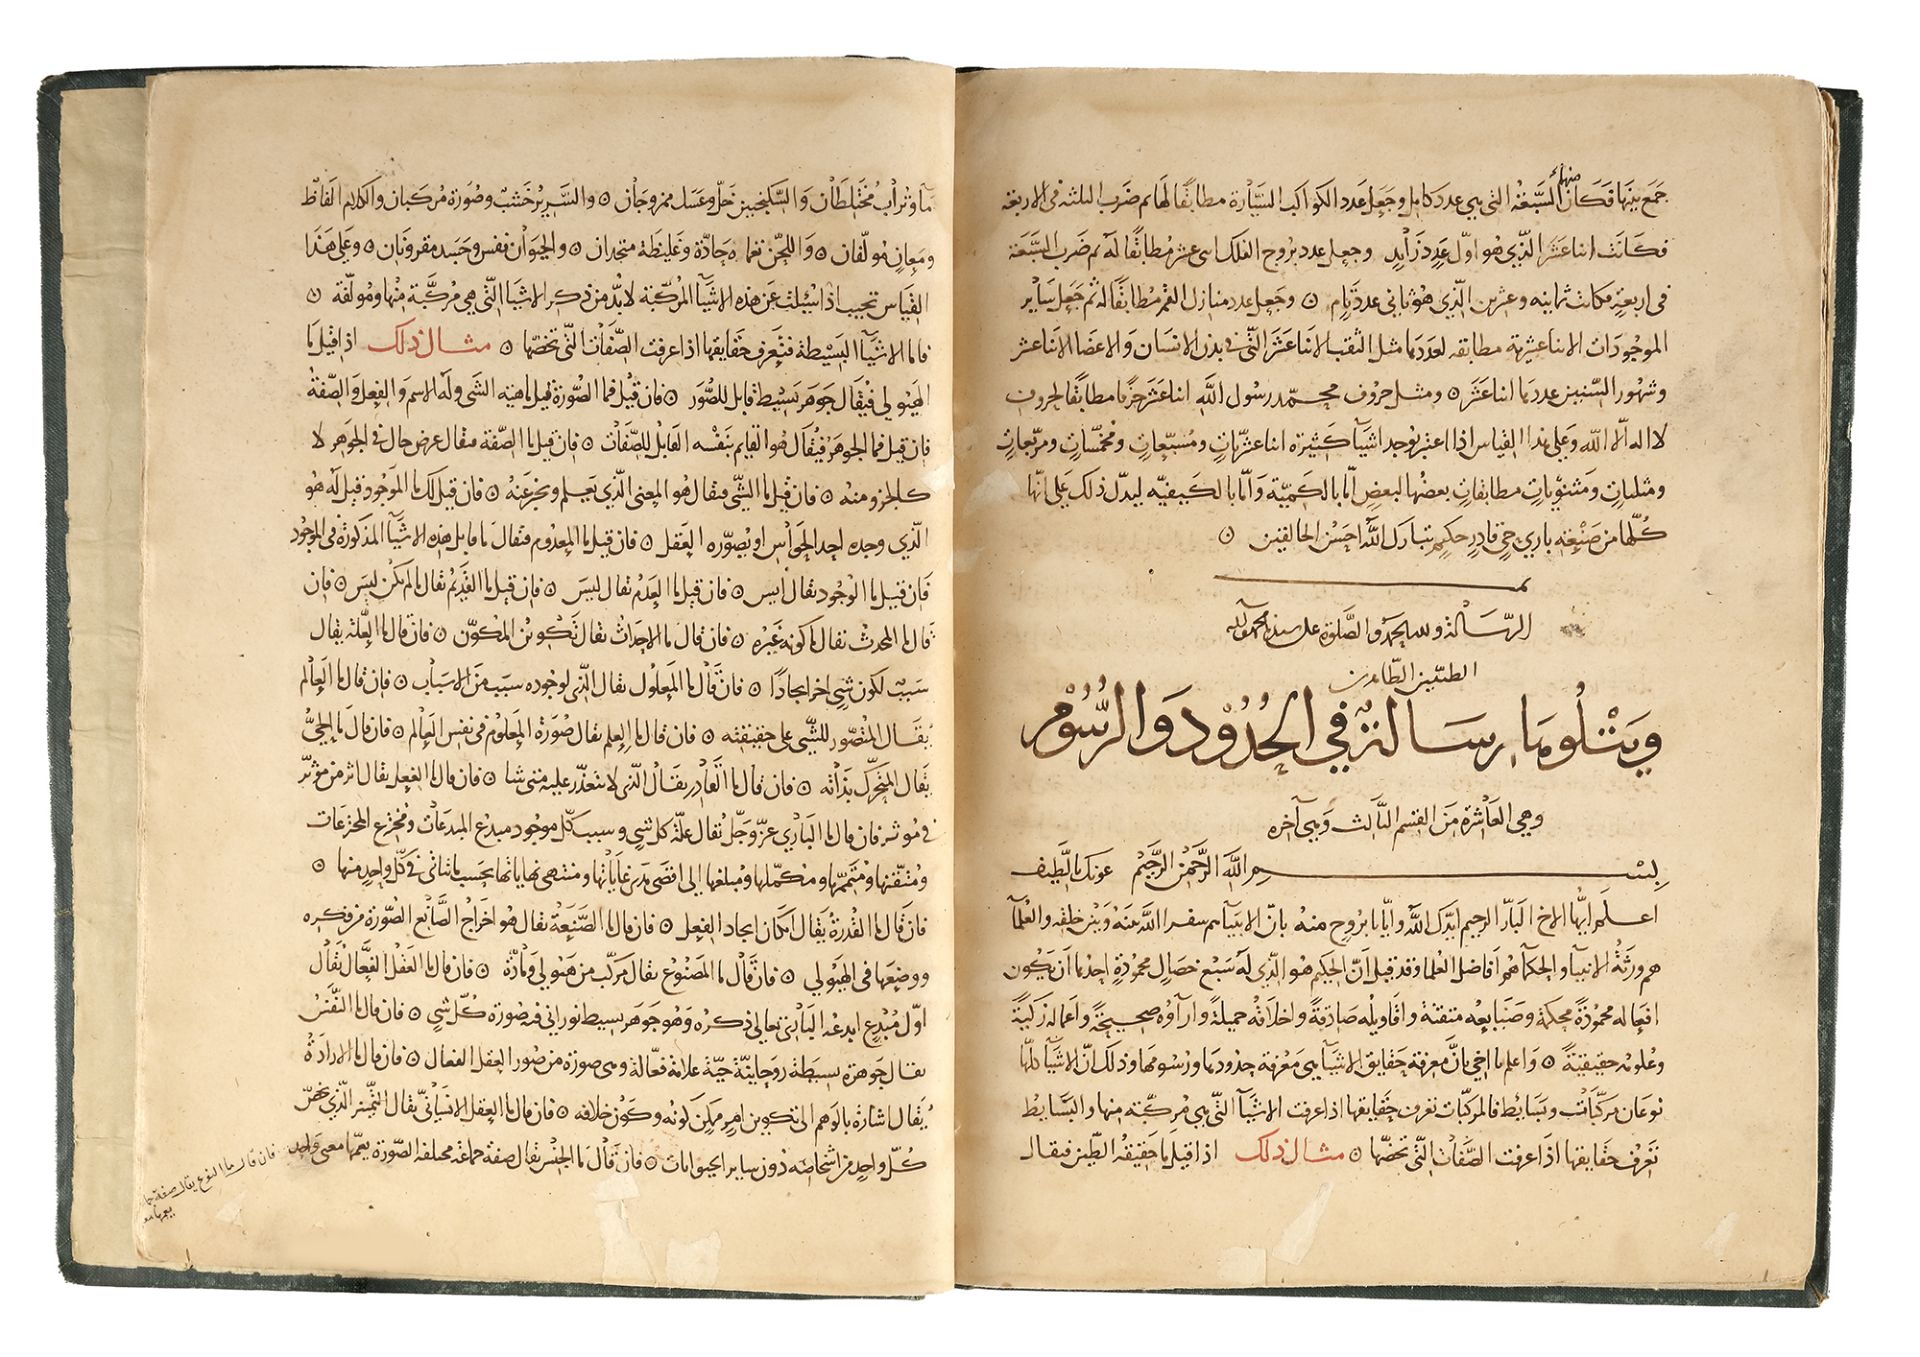 جمع بينها فكان منهما السبعة التي هي عدد كامل وجعل عدد الكواكب السيارة مطابقًا لها ثم ضرب الثلثة في الاربعة
فكانت اثنا عشر الذي هو اول عدد زايد وجعل عدد بروج الفلك اثني عشر مطابقًا له ثم ضرب السبعة
في اربعة فكانت ثمانية وعشرين الذي هو ثاني عدد تام ⊙ وجعل عدد منازل القمر مطابقًا له ثم جعل ساير
الموجودات الاثنا عشرية مطابقة لعددها مثل الثقب الاثنا عشر التي في بدن الانسان والاعضا الاثنا عشر
وشهور السنين عددها اثنا عشر ⊙ ومثل حروف محمد رسول الله اثنا عشر حرفًا مطابقًا لحروف
لا اله الا الله وعلى هذا القياس اذا اعتبر يوجد اشيآ كثيرة اثنا عشريات ومسبعات ومخمسات ومربعات
ومثلثات ومثنويات مطابقات بعضها لبعض اما بالكمية واما بالكيفية ليدل ذلك على انها
كلها من صنعة باري حي قادر حكيم تبارك الله احسن الخالقين ⊙
تمـ
الرسالة ولله الحمد والصلوة على سيدنا محمد وآله
الطيبين الطاهرين
ويتلوها رسالة في الحُدُوْد وَالرُّسُوْم
وهي العاشرة من القسم الثالث وهي آخره
بسم الله الرحمن الرحيم عونك يا لطيف
اعلم ايها الاخ البار الرحيم ايدك الله وايانا بروح منه بان الانبيآ هم سفرا الله بينه وبين خلقه والعلمآ
هم ورثة الانبيآ والحكمآ هم افاضل العلما وقد قيل ان الحكيم هو الذي له سبع خصال محمودة احدها ان يكون
افعاله محمودة محكمة وصنايعه متقنة واقاويله صادقة واخلاقه جميلة وارآؤه صحيحة واعماله زكية
وعلومه حقيقية ⊙ واعلم يا اخي بان معرفة حقايق الاشيآ هي معرفة حدودها ورسومها وذلك ان الاشيآ كلها
نوعان مركبات وبسايط فالمركبات تعرف حقايقها اذا عرفت الاشيآ التي هي مركبة منها والبسايط
تعرف حقايقها اذا عرفت الصفات التي تخصها ⊙ مثال ذلك اذا قيل ما حقيقة الطين فيقال
مآ وتراب مختلطان والسكنجبين خل وعسل ممزوجان ⊙ والسرير خشب وصورة مركبان والكلام الفاظ
ومعان مولفان ⊙ واللحن نغمة حادة وغليظة متحدان ⊙ والحيوان نفس وجسد مقرونان ⊙ وعلى هذا
القياس تجيب اذا سُئلت عن هذه الاشيآ المركبة لا بد من ذكر الاشيا التي هي مركبة منها ومولفة ⊙
فاما الاشيآ البسيطة فتعرف حقايقها اذا عرفت الصفات التي تخصها ⊙ مثال ذلك اذا قيل ما
الهيولي فيقال جوهر بسيط قابل للصور ⊙ فان قيل فما الصورة قيل ماهية الشي وله الاسم والفعل والصفة
فان قيل فما الجوهر فيقال هو القايم بنفسه القابل للصفات ⊙ فان قيل ما الصفة فيقال عرض حال في الجوهر لا
كالجزو منه ⊙ فان قيل ما الشي فيقال هو المعنى الذي يعلم ويخبر عنه ⊙ فان قيل لك ما الموجود قيل له هو
الذي وجده احد الحواس او تصوره العقل ⊙ فان قيل ما المعدوم فيقال ما قابل هذه الاشيآ المذكورة في الموجود
فان قيل ما الوجود يقال ايس ⊙ فان قيل ما العدم يقال ليس ⊙ فان قيل ما القديم يقال ما لم يكن ليس ⊙ فان
قال ما المحدث يقال ما كونه غيره ⊙ فان قال ما الاحداث يقال تكوين المكون ⊙ فان قال ما العلة يقال
سبب لكون شي اخر ايجادًا ⊙ فان قال ما المعلول يقال الذي لوجوده سبب من الاسباب ⊙ فان قال ما العالم
يقال المتصور للشي على حقيقته ⊙ فان قال ما العلم يقال صورة المعلوم في نفس العالم ⊙ فان قال ما الحي
يقال المتحرك بذاته ⊙ فان قال ما القادر يقال الذي لا يتعذر عليه متى شا ⊙ فان قال ما الفعل يقال اثر من مؤثر
في مؤثر فان قال ما الباري عز وجل يقال علة كل شي وسبب كل موجود مبدع المبدعات ومخترع المخترعات
ومتقنها ومتممها ومكملها ومبلغها الى اقصى مدى غاياتها ومنتهى نهاياتها بحسب ما يتاتى في كل واحد منها ⊙
فان قال ما القدرة يقال امكان ايجاد الفعل ⊙ فان قال ما الصنعة يقال هو اخراج الصانع الصورة من فكره
ووضعها في الهيولي ⊙ فان قال ما المصنوع يقال مركب من هيولي ومادة ⊙ فان قال ما العقل الفعال يقال
اول مبدع ابدعه الباري تعالى ذكره وهو جوهر بسيط نوراني فيه صورة كل شي ⊙ فان قال ما النفس
يقال جوهرة بسيطة روحانية حية علامة فعالة وهي صورة من صور العقل الفعال ⊙ فان قال ما الارادة
يقال اشارة بالوهم الى تكوين امر ممكن كونه وكون خلافه ⊙ فان قال ما العقل الانساني يقال التمييز الذي يخص
كل واحد من اشخاصه دون ساير الحيوانات ⊙ فان قال ما الجنس يقال صفة جماعة مختلفة الصورة يعمها معنى واحد
فان قال ما النوع يقال صفة جما
يعمها مع